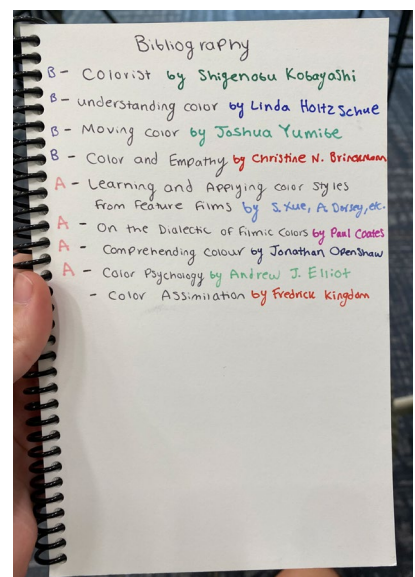 Bibliography
B - Colorist by Shigenobu Kobayashi
B - understanding color by Linda Holtzschue
B - Moving color by Joshua Yumibe
B - Color and Empathy by Christine N. Brinckmann
A - Learning and Applying color styles
From feature films by S. Xue, A. Dorsey, etc.
A - On the Dialectic of Filmic Colors by Paul Coates
A - Comprehending colour by Jonathan Openshaw
A - Color Psychology by Andrew J. Elliot
- Color Assimilation by Fredrick Kingdom